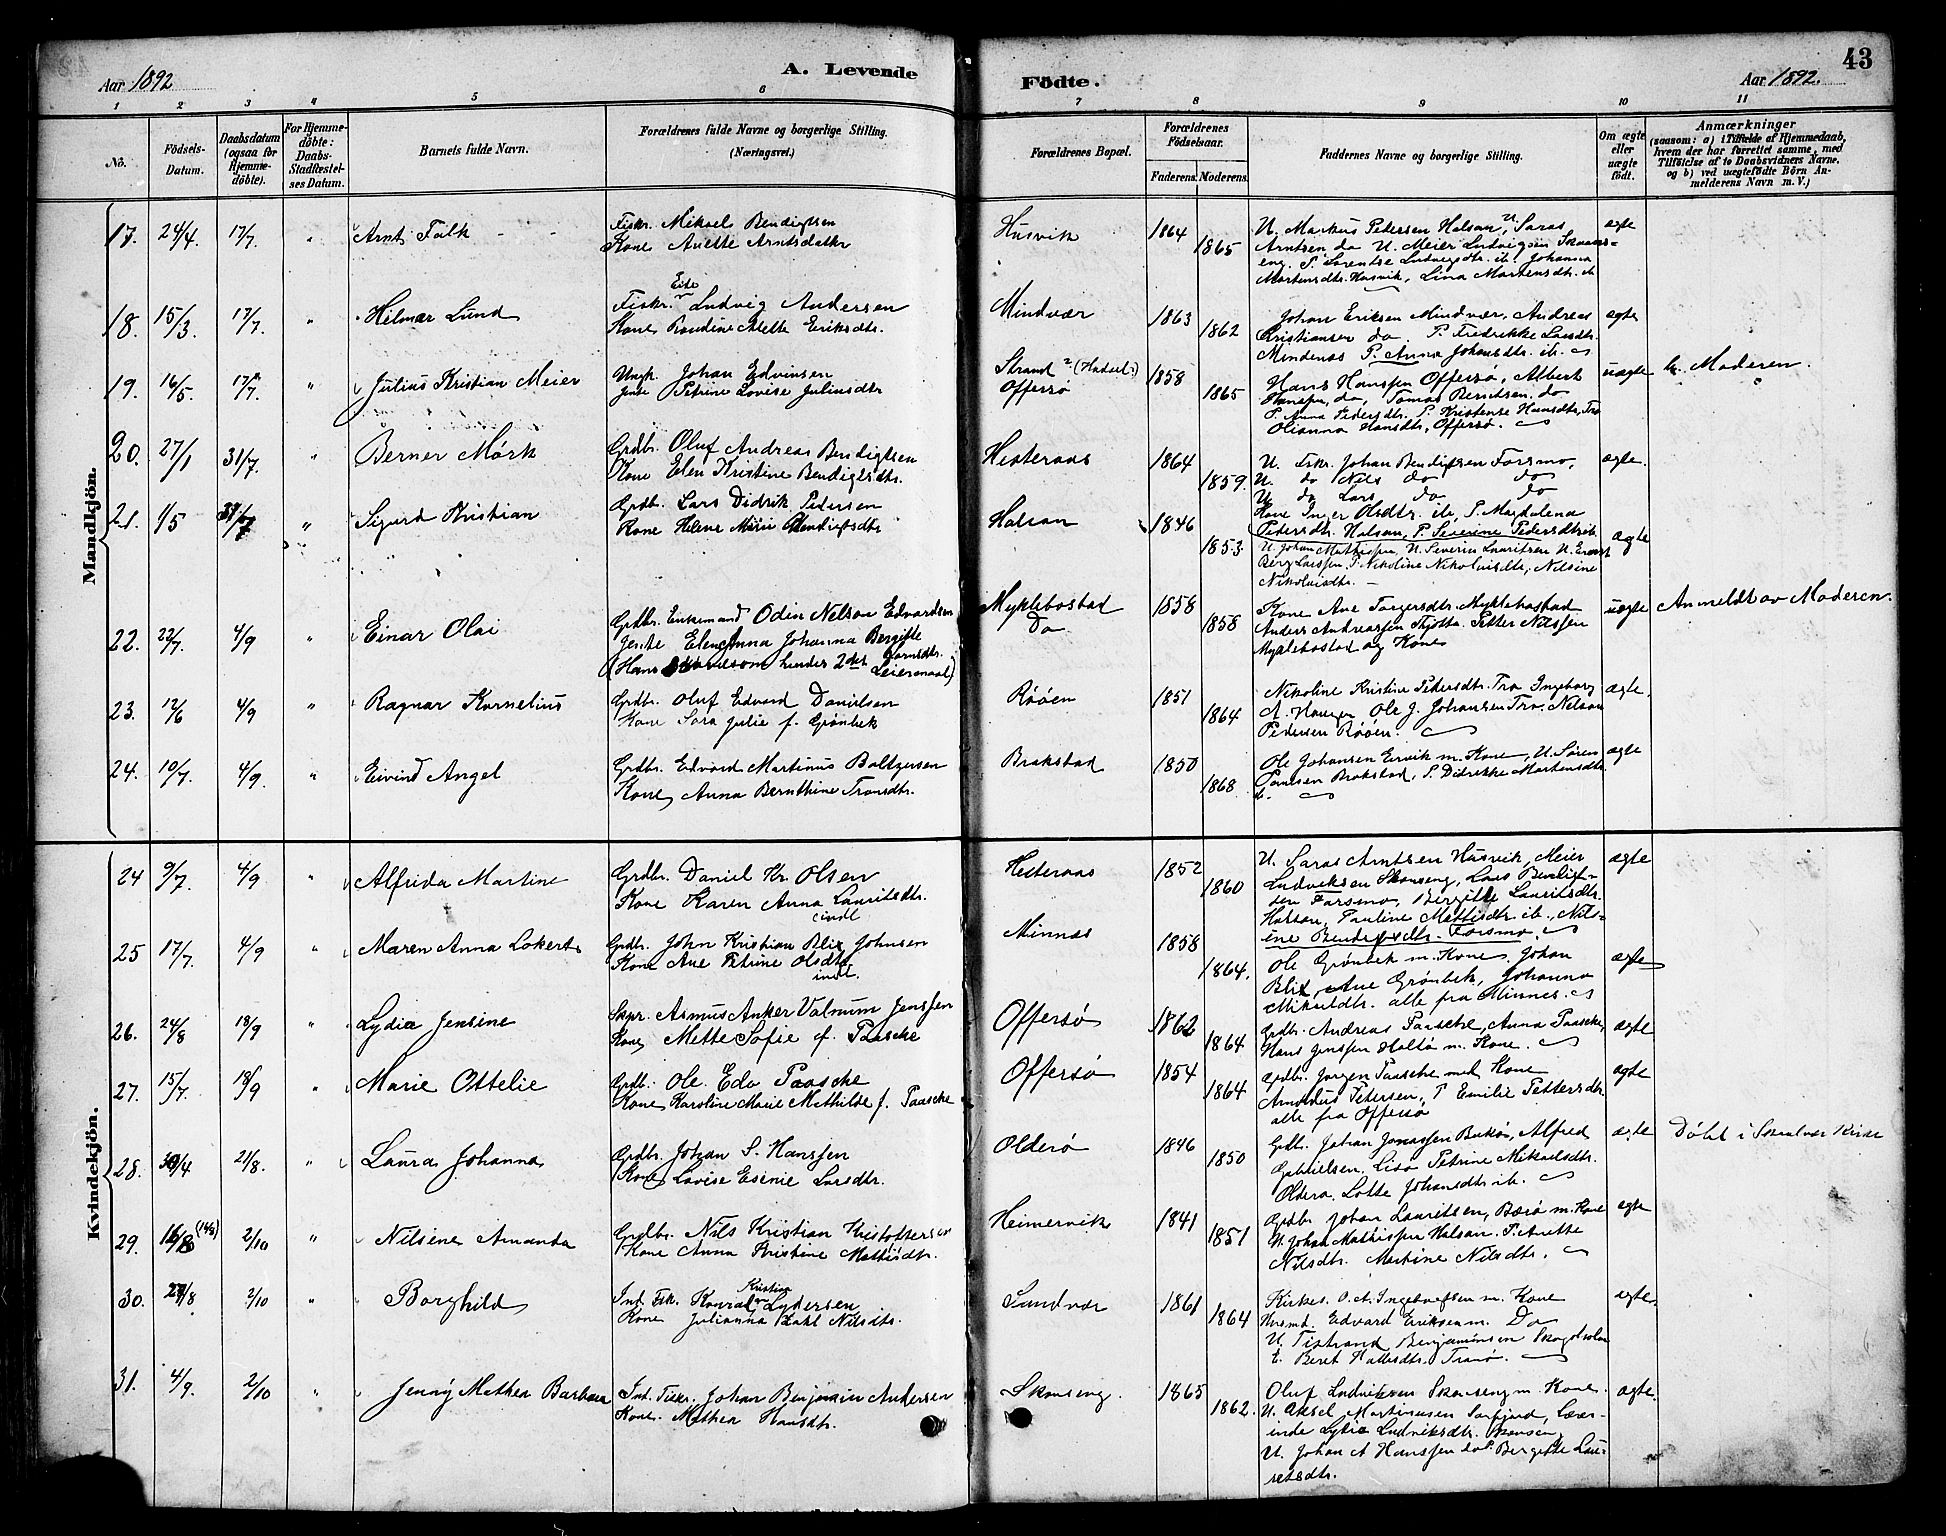 Aar 1892
A. Levende
Födte.
Aar 1892.
43
1 2 3 4 5 6 7 8 9 10 11
No.
Födsels-
Datum.
Daabsdatum
(ogsaa for
Hjemme-
döbte).
For Hjemme-
döbte:
Daabs-
Stadfæstel-
ses Datum.
Barnets fulde Navn.
Forældrenes fulde Navne og borgerlige Stilling.
(Næringsvei.)
Forældrenes Bopæl.
Forældrenes
Födselsaar.
Faderens. Moderens.
Faddernes Navne og borgerlige Stilling.
Om ægte
eller
uægte
födt.
Anmærkninger
(saasom: a) i Tilfælde af Hjemmedaab,
hvem der har forrettet samme, med
Tilföielse af to Daabsvidners Navne,
og b) ved uægtefödte Börn An-
melderens Navn m. V.)
Mandkjön.
17. 24/4. 17/7. " Arnt Falk
Fiskr. Mikael Bendigtsen
Kone Anette Arntsdatter
Husvik 1864 1865
U. Markus Petersen Halsan, U. Saras
Arntsen do U. Meier Ludvigsen Skaans-
eng. P. Lorentse Ludvigsdtr. ib. Johanna
Martensdtr. Husvik, Lina Martensdtr. ib
ægte
18. 15/3. 17/7. " Hilmar Lund
Fiskr. Ludvig Andersen
Kone Randine Alette Eriksdtr.
Mindvær 1863 1862
Johan Eriksen Mindvær, Andreas
Kristiansen do P. Fredrikke Larsdtr.
Mindenas P. Anna Johansdtr. ib.
ægte
19. 16/5. 17/7. " Julius Kristian Meier
Ungk. Johan Edvinsen
Jente Petrine Lovise Juliusdtr
Strand
Offersø 1858 1865
Hans Hanssen Offersø, Albert
Hanssen, do, Tomas Berntsen do
P. Anna Pedersdtr. P. Kristense Hansdtr, Tro
Olianna Hansdtr, Offersø.
uægte Moderen.
20. 27/1 31/7. " Berner Mørk
Grdbr. Oluf Andreas Bendigtsen
Kone Elen Kristine Bendigtsdtr.
Hesteraas 1864 1859.
U. Fskr. Johan Bendigtsen Forsmo,
U. do Nils do do
U. do Lars do do
Kone Inger Olsdtr. ib, P. Magdalena
Pedersdtr. Halsan, P. Severine Pedersdtr ib
ægte.
21. 1/5 31/7 " Sigurd Kristian
Grdbr. Lars Didrik Petersen
Kone Helene Marie Bendigtsdtr
Halsan 1846 1853.
U. Johan Mathissen, U. Severin Lauritsen U. Ernst
Berg Larssen, P. Nikoline Nikolaisdtr, Nilsine
Nikolaisdtr.
ægte
22. 22/7. 4/9 " Einar Olai
Grdbr. Enkemand Odin Nelson Edvardsen
Jente Elen Anna Johanna Bergitte
(Hans hendes 2det Leiermaal)
Myklebostad
Do 1858 1858
Kone Ane Torgersdtr. Myklebostad
Anders Andreassen Thjøtta. Petter Nilssen
Myklebostad og Kone
uægte Anmeldt av Moderen.
23. 12/6 4/9 " Ragnar Kornelius
Grdbr. Oluf Edvard Danielsen
Kone Sara Julie f. Grønbek
Røøen 1851 1864
Nikoline Kristine Pedersdtr. Tro Ingeborg
A. Hauger Ole J. Johansen Tro. Nelson
Pedersen Røøen.
ægte.
24. 10/7. 4/9. " Eivind Angel
Grdbr. Edvard Martinus Baltzersen
Kone Anna Bernthine Tronsdtr.
Brakstad 1850 1868
Ole Johansen Ervik m. Kone, U. Søren
Paulsen Brakstad, P. Didrikke Martensdtr.
ib.
ægte
Kvindekjön.
24 9/7. 4/9 " Alfrida Martine
Grdbr. Daniel Kr. Olsen
Kone Karen Anna Lauritsdtr.
Hesteraas 1852 1860
U. Saras Arntsen Husvik, Meier
Ludviksen Skonseng, Lars Bendigt-
sen Forsmo, Bergitte Lauritsdtr.
Halsan, Pauline Mathisdtr ib., Nils-
ine Bendigtsdtr. Forsmo.
ægte
25 17/7. 4/9 " Maren Anna Lokerts
Grdbr. John Kristian Blix Johnsen
Kone Ane Petrine Olsdtr
Minnes 1858 1864.
Ole Grønbek m. Kone. Johan
Blix, Ane Grønbek, Johanna
Mikaldtr. alle fra Minnes.
ægte
26. 24/8 18/9 " Lydia Jensine
Skpr. Asmus Anker Valnum Jenssen
Kone Mette Sofie f. Paasche
Offersø 1862 1864
Grdbr. Andreas Paasche, Anna Paasche,
Hans Jenssen Haltø m. Kone.
ægte
27. 15/7 18/9 " Marie Ottelie
Grdbr. Ole Edv Paasche
Kone Karoline Marie Mathilde f. Paasche
Offersø 1854 1864
Grdbr. Jørgen Paasche med Kone
Arnoldus Petersen, P Emilie Pettersdtr.
alle fra Offersø
ægte
28. 30/4 21/8. " Laura Johanna
Grdbr. Johan S. Hanssen
Kone Lovise Esenie Larsdtr.
Olderø 1846 1850
Grdb. Johan Jonassen Buksø, Alfred
Gabrielsen, Lisa Petrine Mikalsdtr.
Olderø. Lotte Johansdtr ib.
ægte Døbt i Skaalvær Kirke
29. 16/8 (14/8) 2/10 " Nilsine Amanda
Grdbr. Nils Kristian Kristoffersen
Kone Anna Kristine Mathisdtr.
Heimervik 1841 1851
Grdbr Johan Lauritsen, Bærø m. Kone
U. Johan Mathissen Halsan. P. Anette
Nilsdtr. Martine Nilsdtr.
ægte
30. 27/8 2/10 " Borghild
Ind. Fsk. Konrad Kristian Lydersen
Kone Julianna Dahl Nilsdtr.
Sandvær 1861 1864
Kirkes. O. A. Ingebrigtsen m. Kone
Husmd. Edvard Eriksen m. Do
U. Tistrand Benjaminsen Skogsholm
E. Beret Hallesdtr. Tranø.
ægte.
31. 4/9. 2/10 " Jenny Mathea Barbara
Ind. Fiskr. Johan Benjamin Andersen
Kone Mathea Hansdtr.
Skonseng. 1865 1862.
Oluf Ludviksen Skonseng m. Kone.
U. Aksel Martinusen Sørfjord, Lær-
inde Lydia Ludviksdtr. Skonseng
U. Johan A Hanssen do P. Bergitte Lau-
ritsdtr.
ægte.